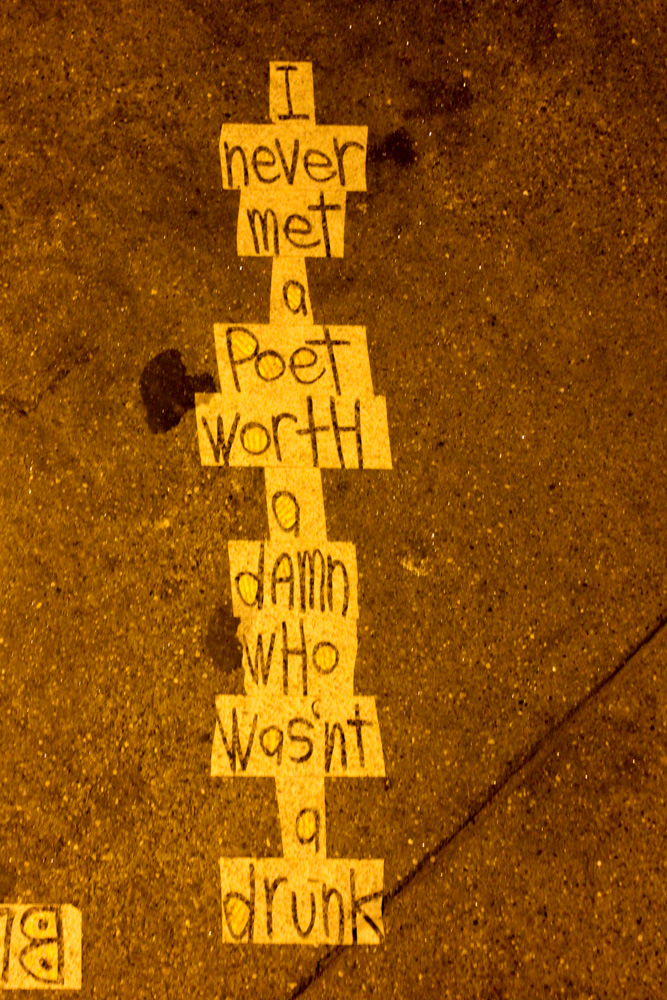 I
never
met
a
Poet
WortH
a
dAmn
wHo
Was'nt
a
drunk